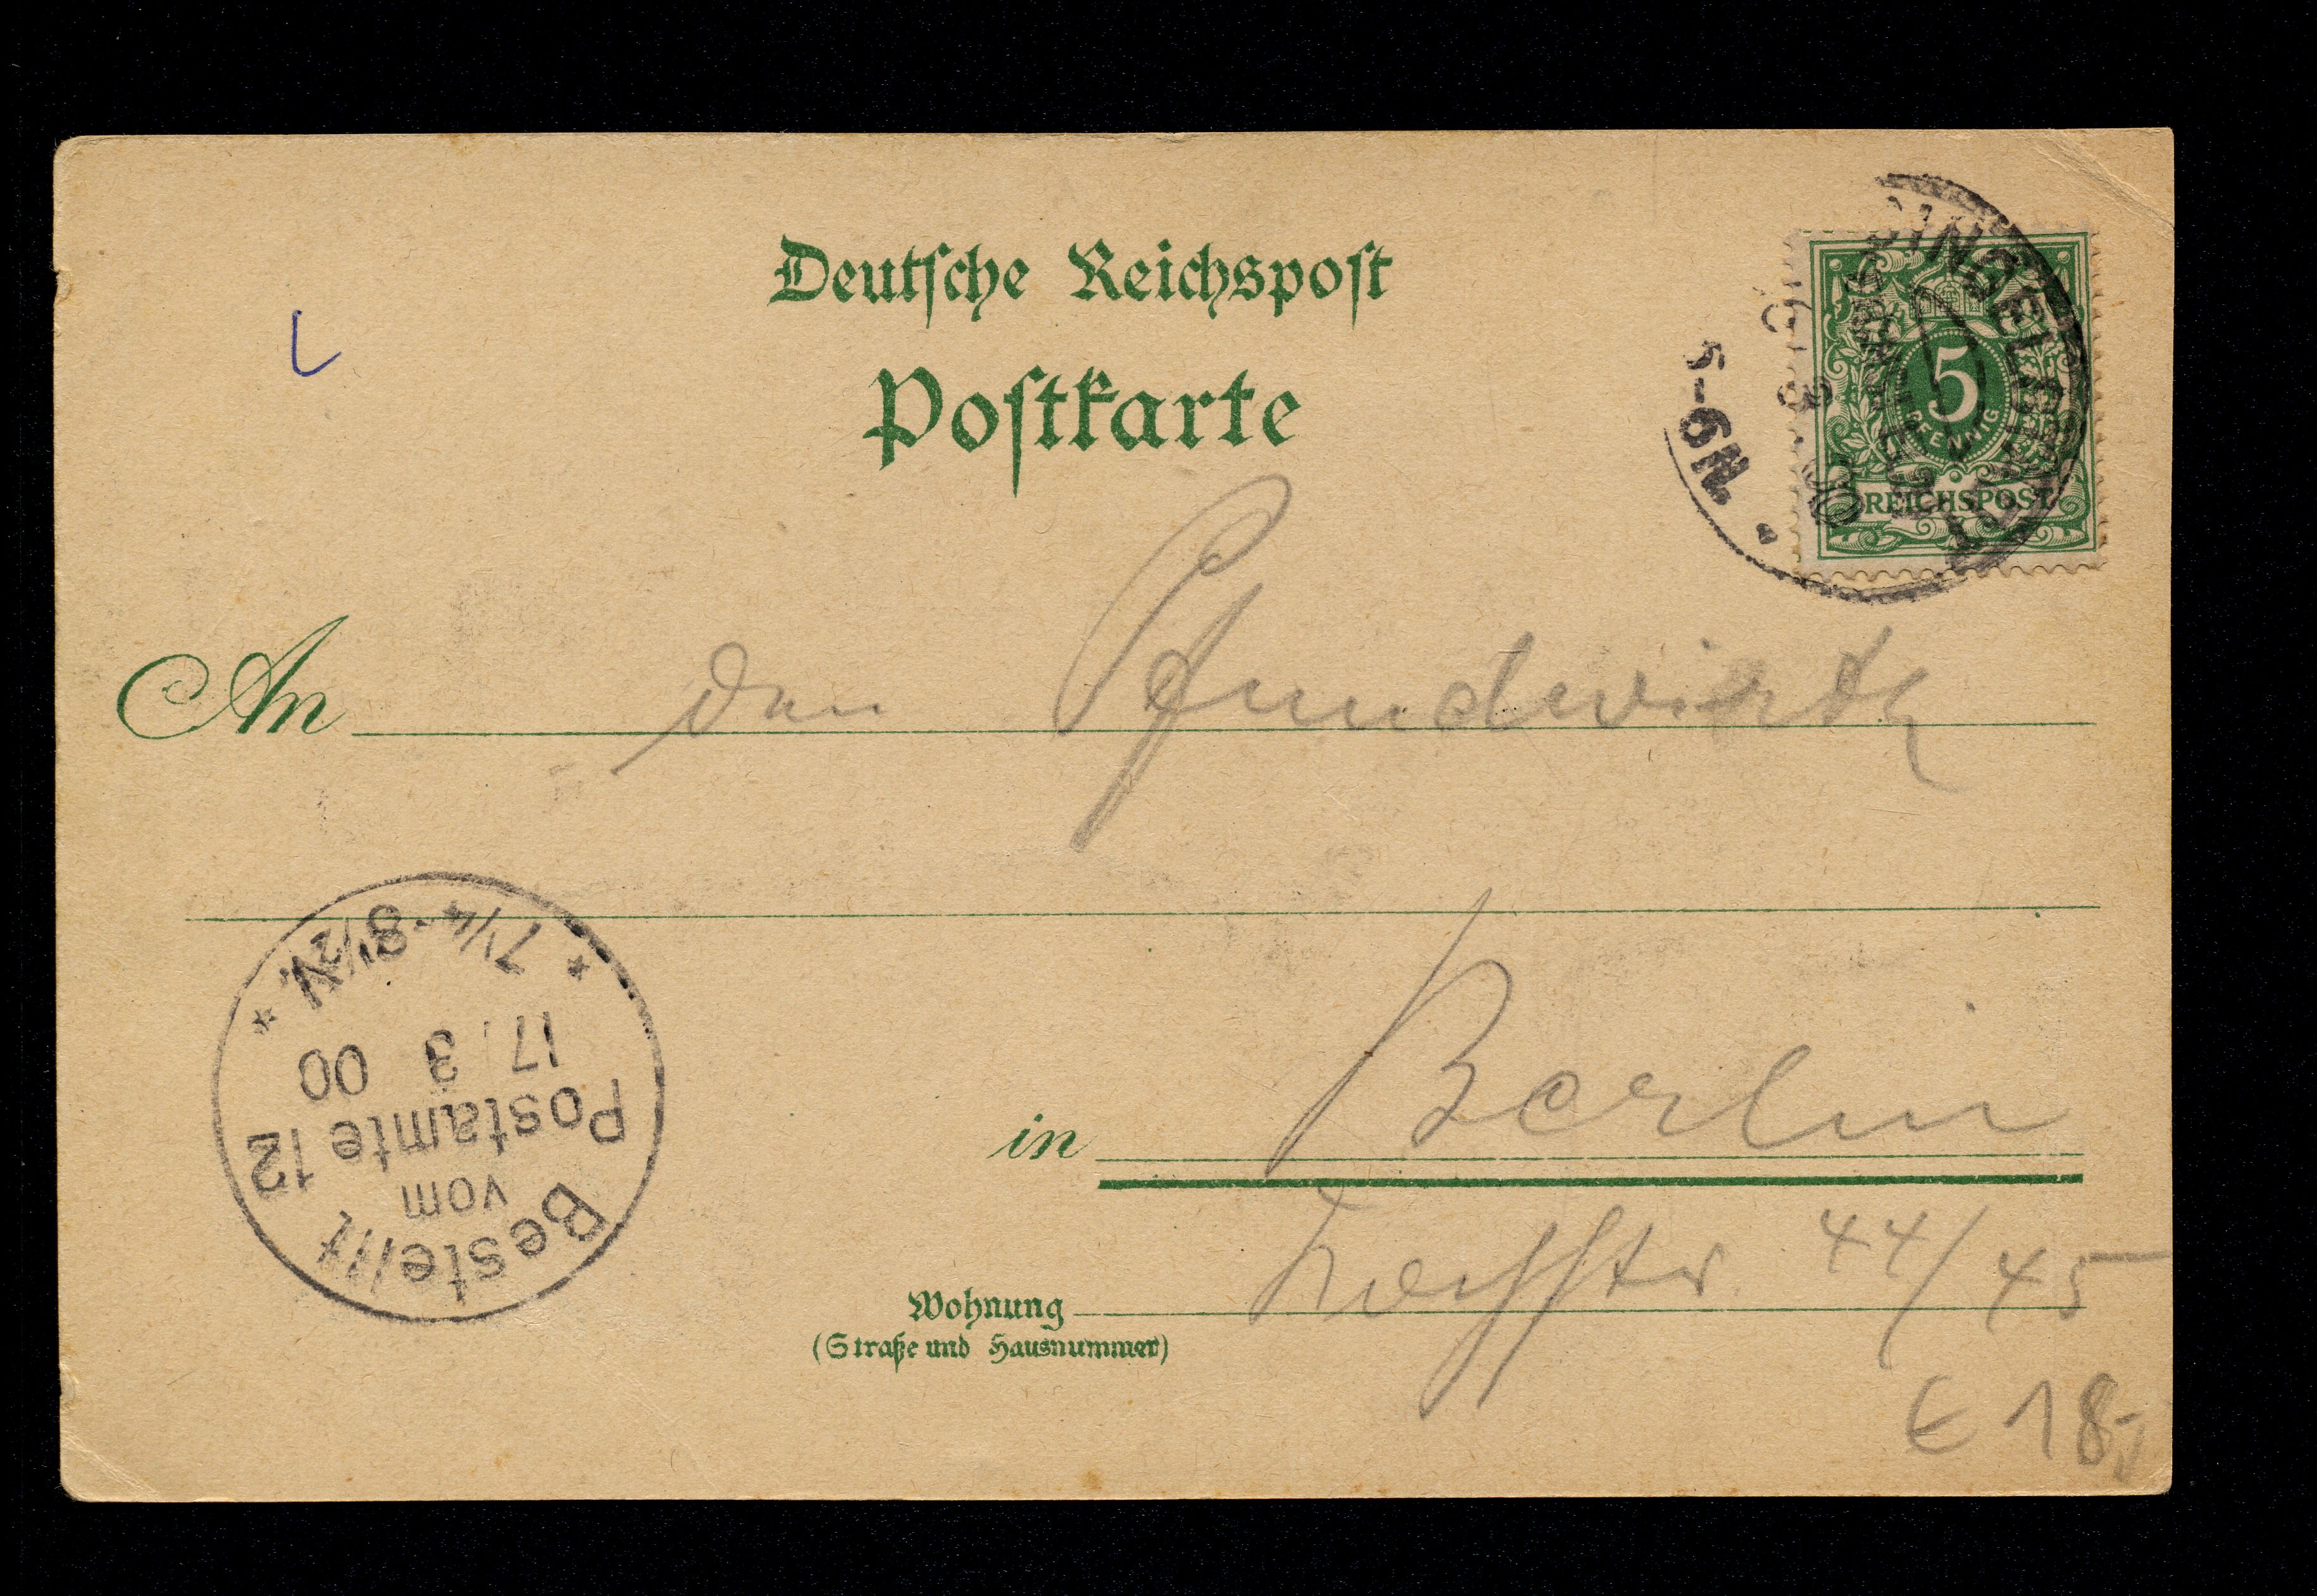 Deutsche Reichspost
Postkarte
5
PFENNIG
REICHSPOST
5-6N
An den Pfundwirth
in Berlin
Wohnung Kochstr. 44/45
(Straße und Hausnummer)
€ 18,-
Bestellt
vom
Postamte 12
17. 3 00
* 7 1/4-8 1/2 N. *